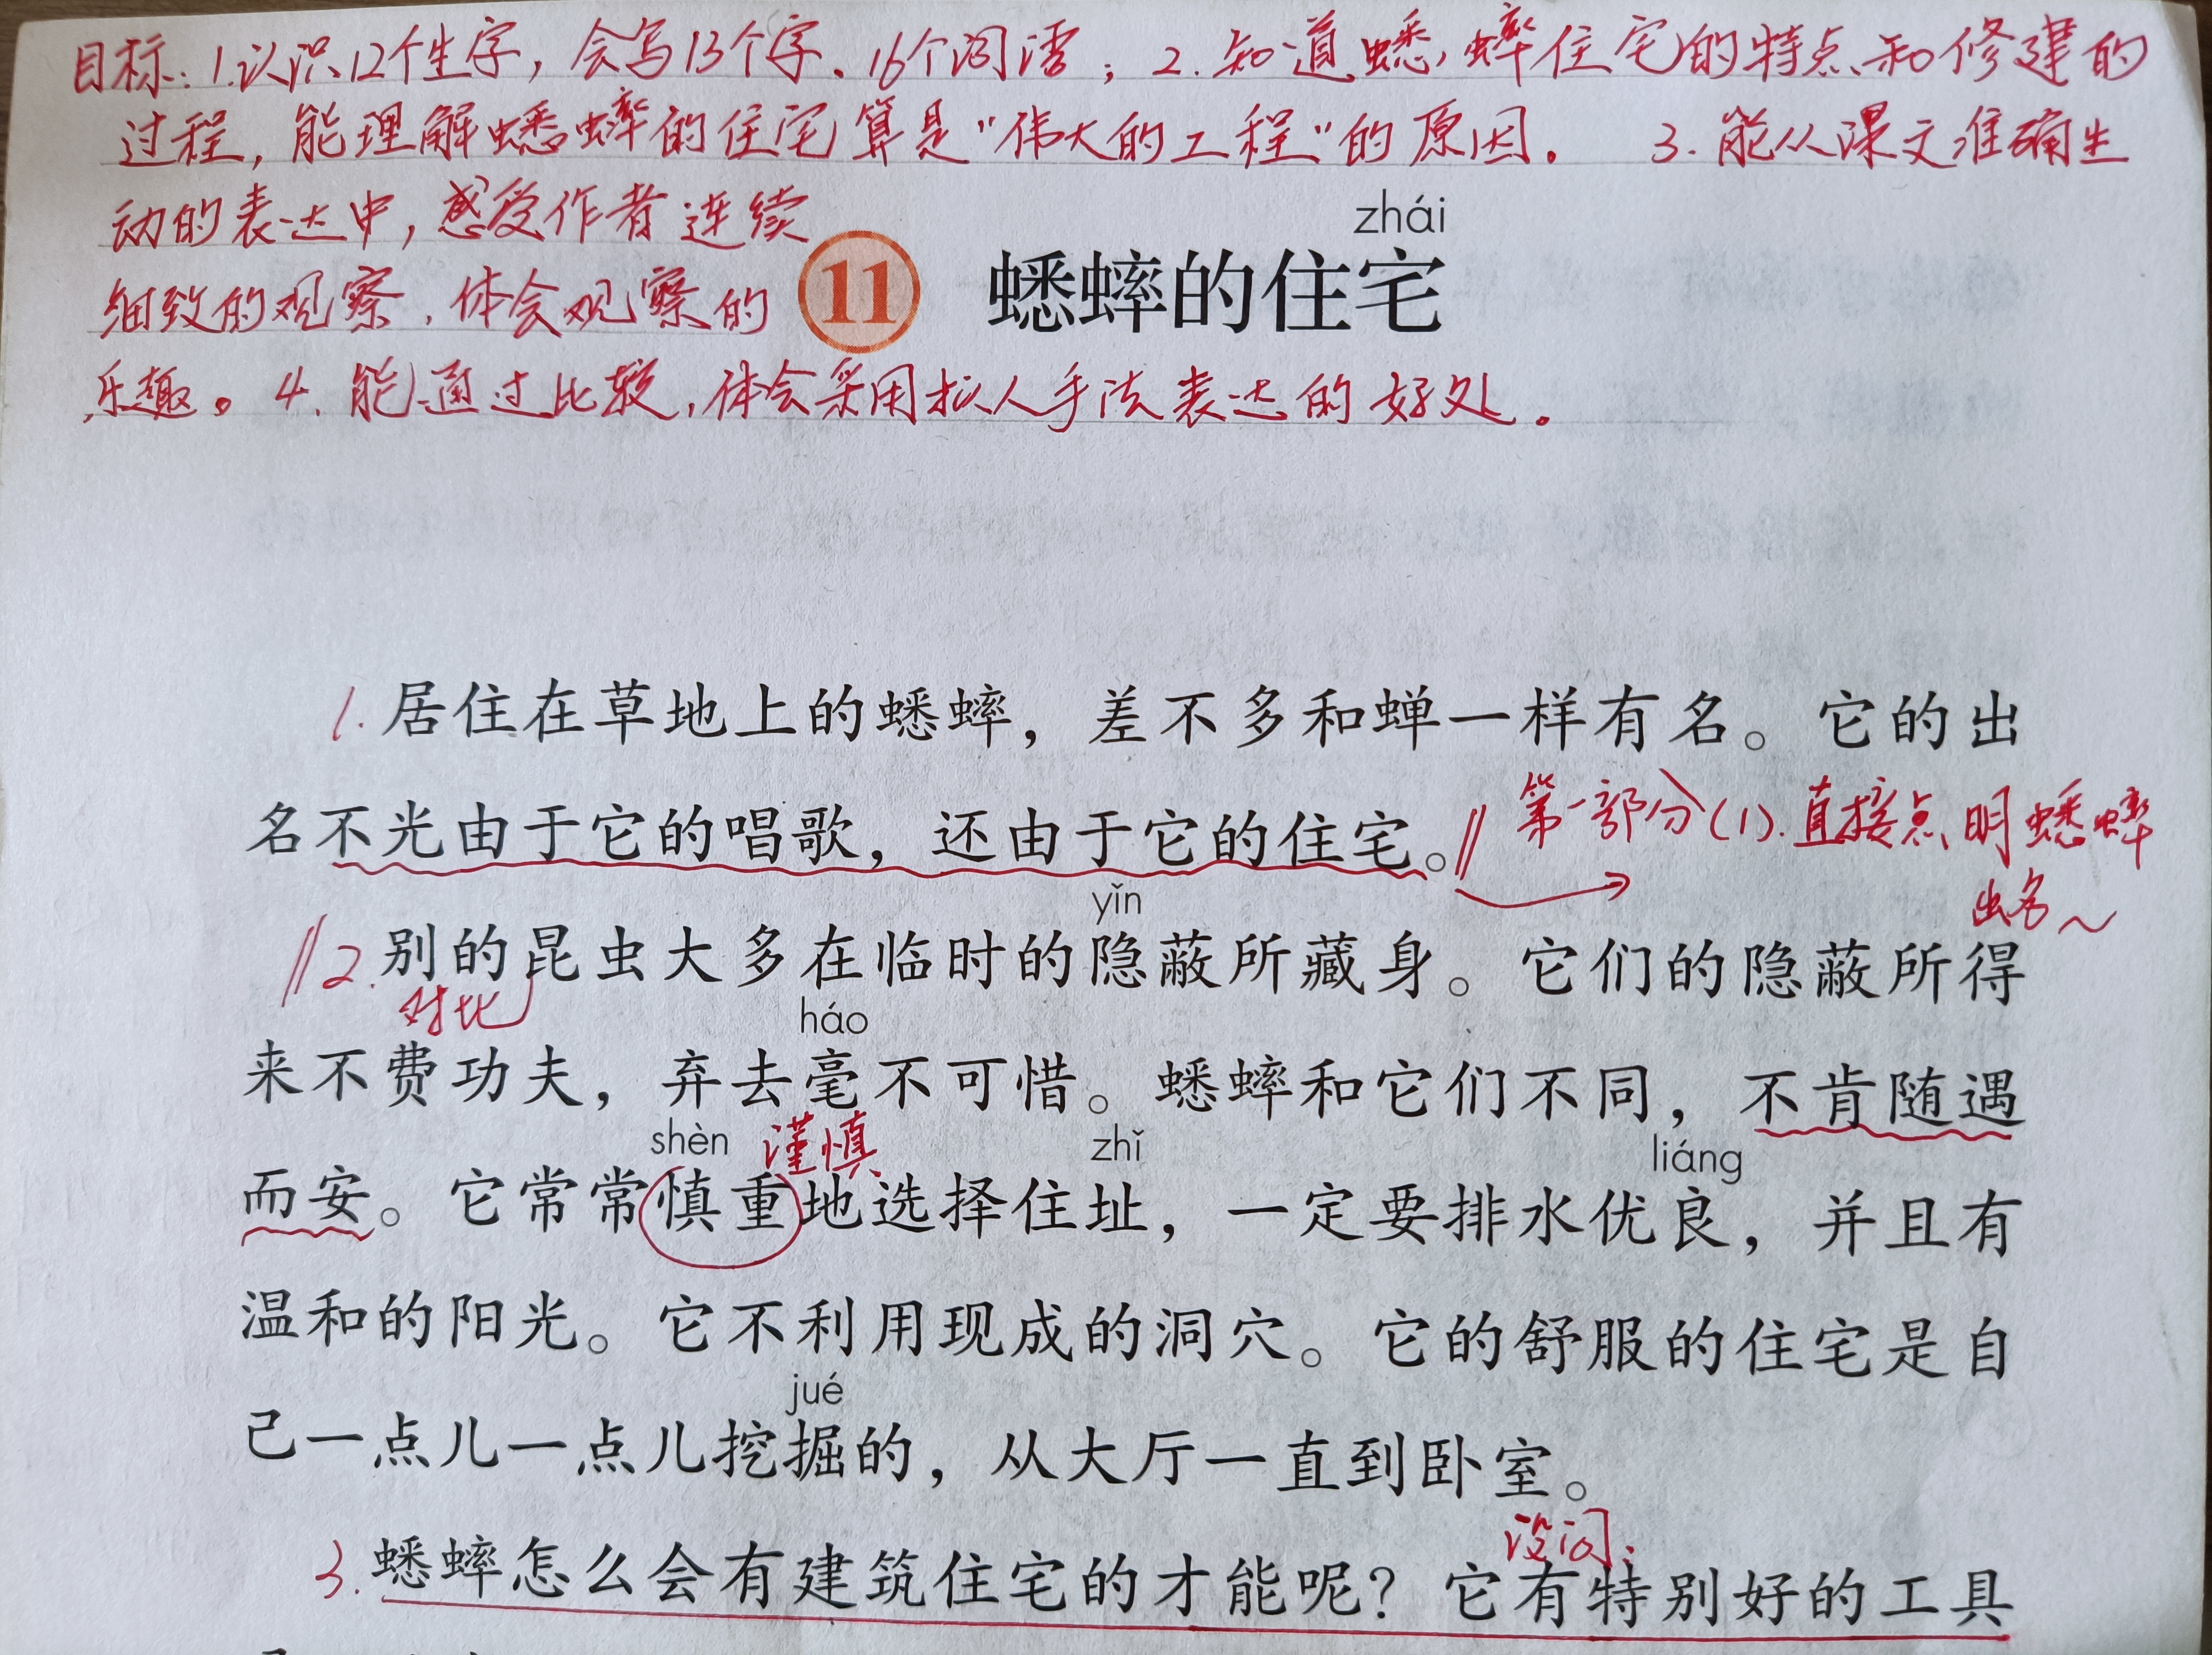 目标：1.认识12个生字，会写13个字、16个词语；2.知道蟋蟀住宅的特点和修建的
过程，能理解蟋蟀的住宅算是“伟大的工程”的原因。 3.能从课文准确生
动的表达中，感受作者连续
细致的观察，体会观察的
乐趣。4.能通过比较，体会采用拟人手法表达的好处。
zhái
11 蟋蟀的住宅
1.居住在草地上的蟋蟀，差不多和蝉一样有名。它的出
名不光由于它的唱歌，还由于它的住宅。
第一部分(1).直接点明蟋蟀
出名～
yǐn
2.别的昆虫大多在临时的隐蔽所藏身。它们的隐蔽所得
对比
háo
来不费功夫，弃去毫不可惜。蟋蟀和它们不同，不肯随遇
shèn 谨慎 zhǐ liáng
而安。它常常慎重地选择住址，一定要排水优良，并且有
温和的阳光。它不利用现成的洞穴。它的舒服的住宅是自
jué
己一点儿一点儿挖掘的，从大厅一直到卧室。
设问.
3.蟋蟀怎么会有建筑住宅的才能呢？它有特别好的工具